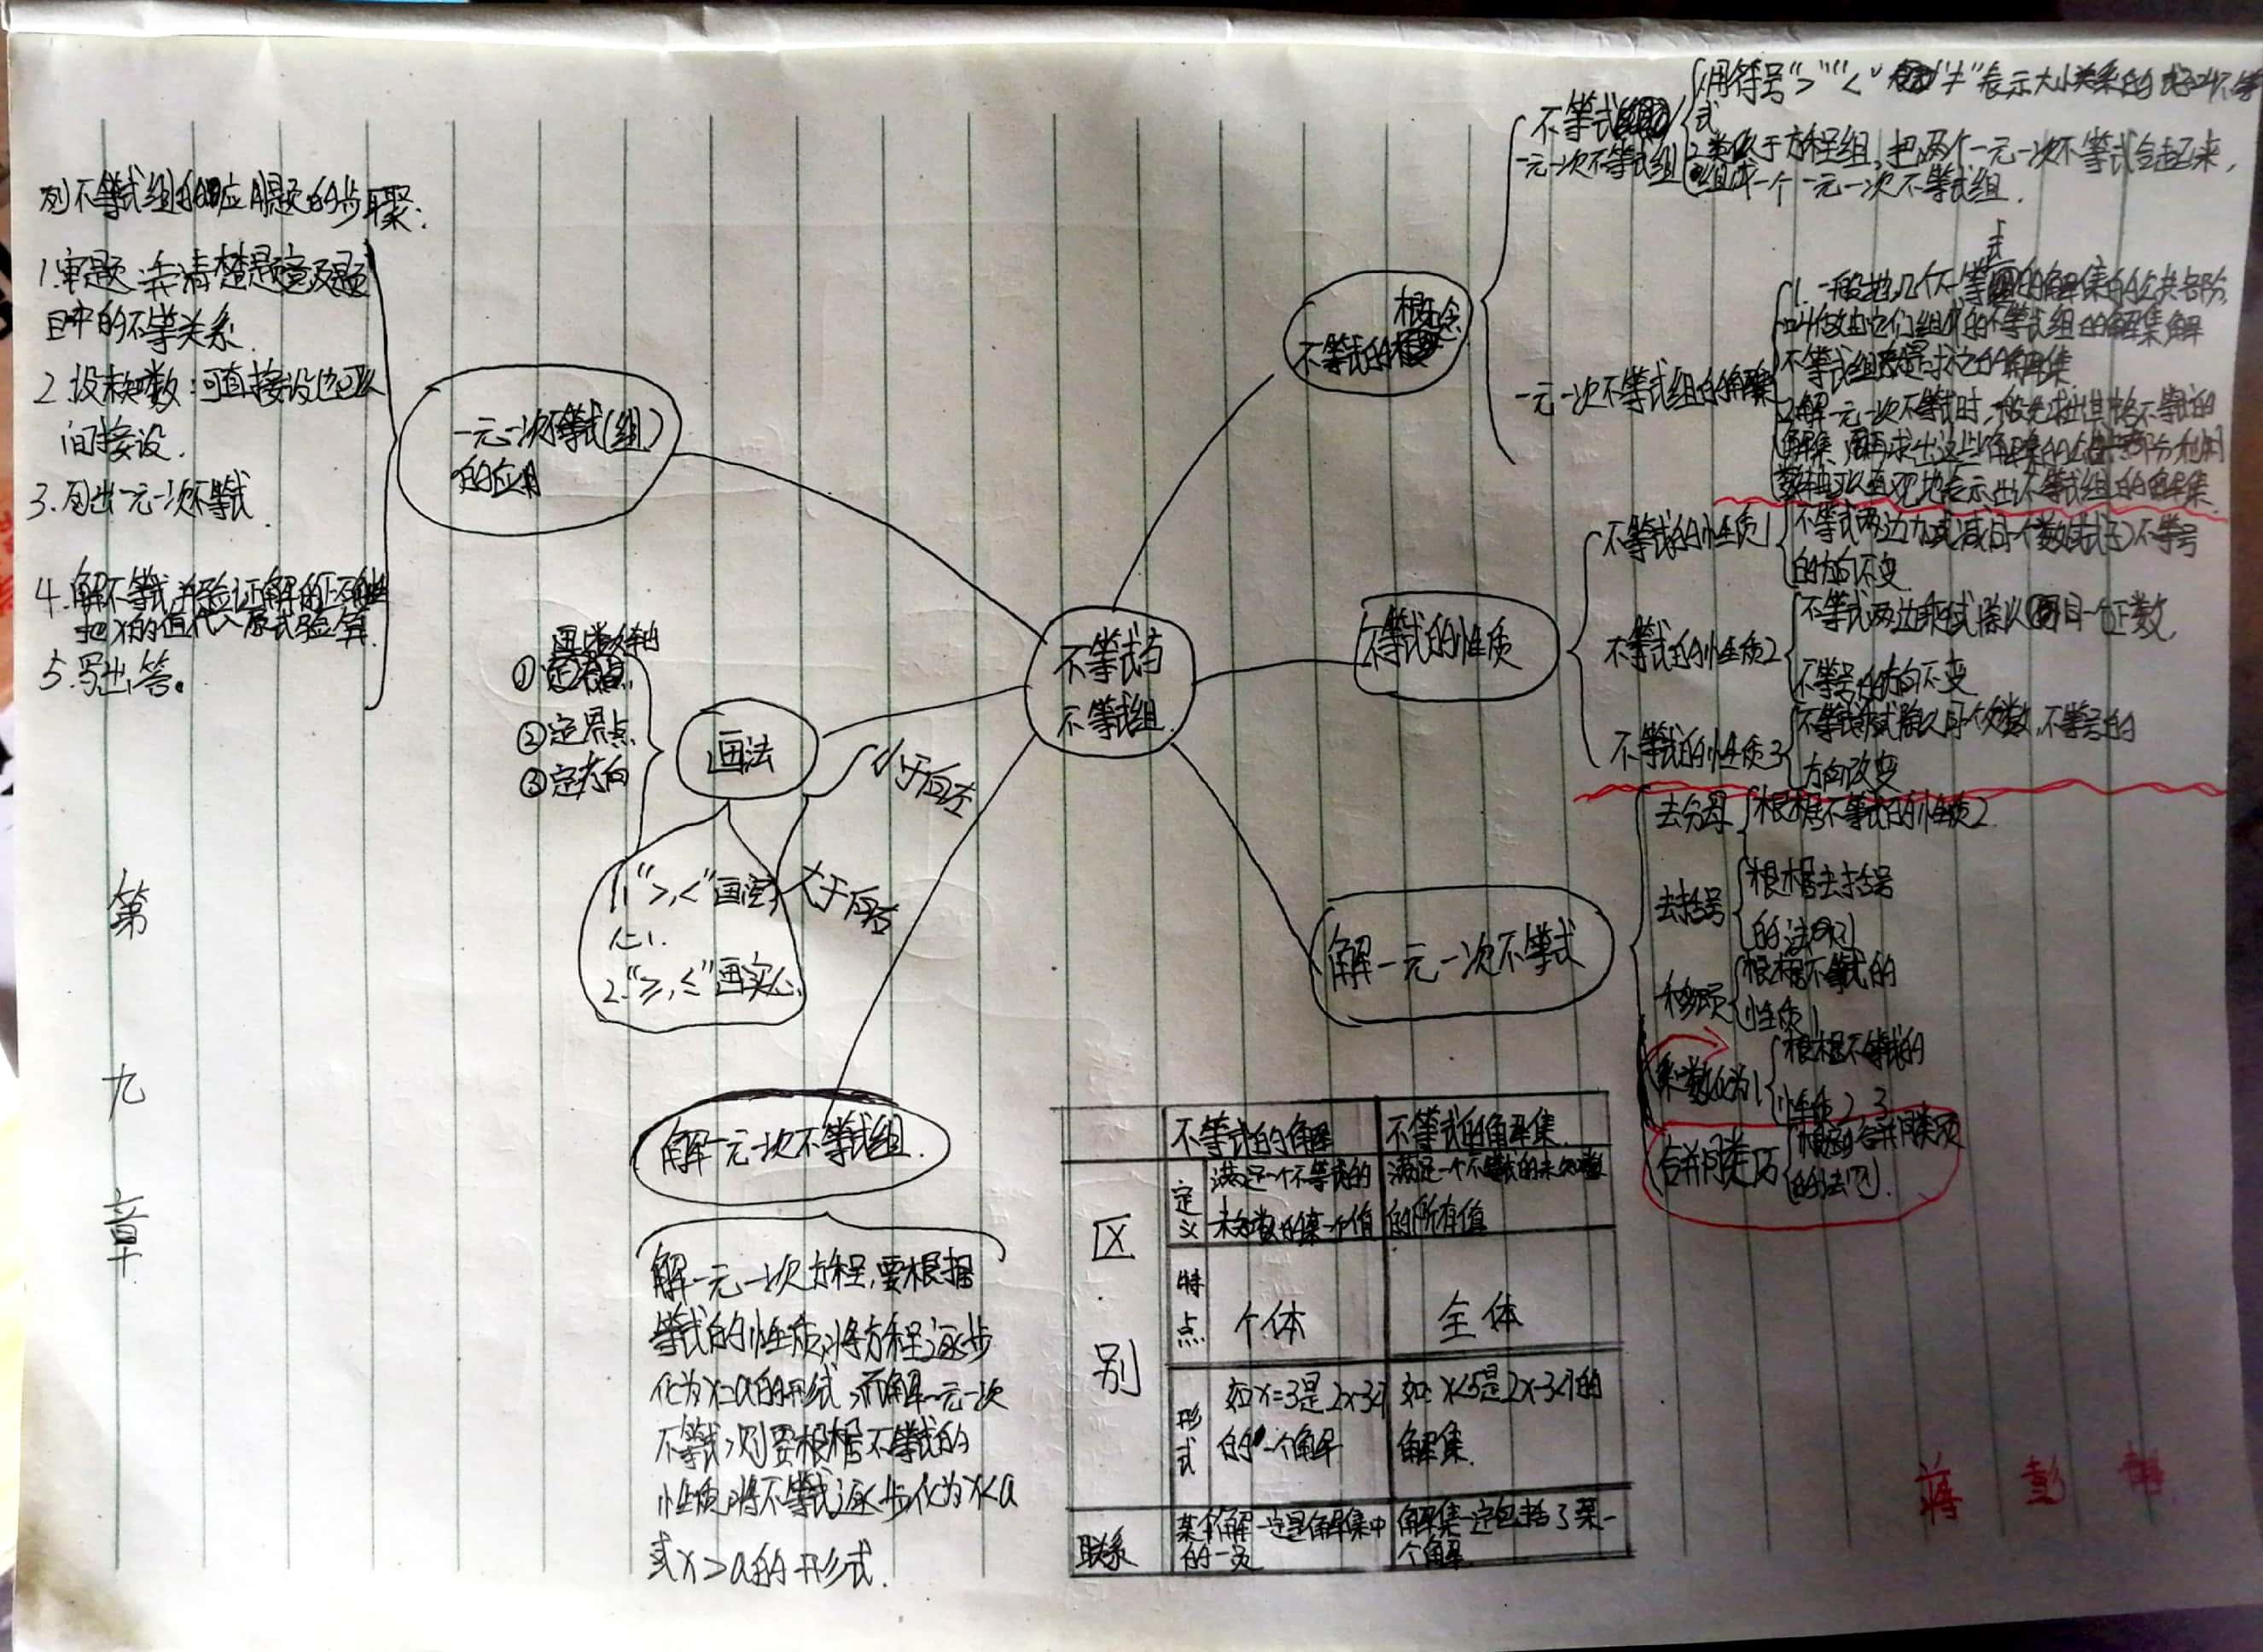 列不等式组的应用题的步骤:
1.审题:弄清楚题意及题
目中的不等关系.
2.设未知数:可直接设也可以
间接设.
3.列出一元一次不等式.
4.解不等式,并验证解的正确性
把x的值代入原式验算.
5.写出答。
一元一次不等式(组)
的应用
画数轴
①定原点
②定界点
③定方向
画法
小于向左
大于向右
1,">,<"画空
心.
2."≥,≤"画实心.
第
九
章
不等式与
不等式组
解一元一次不等式组.
解一元一次方程,要根据
等式的性质,将方程逐步
化为x=a的形式,而解一元一次
不等式,则要根据不等式的
性质,将不等式逐步化为x<a
或x>a的形式.
概念
不等式的
不等式
1.用符号">""<" "≠"表示大小关系的式子叫不等
式
一元一次不等式组
2.类似于方程组,把两个一元一次不等式合起来,
组成一个一元一次不等式组.
一元一次不等式组的解集
1.一般地,几个不等式的解集的公共部分,
叫做由它们组成的不等式组的解集解
不等式组就是求它的解集
2.解一元一次不等式时,一般先求出其中各不等式的
解集,再求出这些解集的公共部分利用
数轴可以直观地表示出不等式组的解集.
不等式的性质
不等式的性质1
不等式两边加或减同一个数(或式子)不等号
的方向不变
不等式的性质2
不等式两边乘或除以同一个正数,
不等号的方向不变
不等式的性质3
不等式乘或除以同一个负数,不等号的
方向改变
解一元一次不等式
去分母
根据不等式的性质2.
去括号
根据去括号
的法则
移项
根据不等式的
性质1
系数化为1
根据不等式的
性质2,3
合并同类项
根据合并同类项
的法则.
不等式的解 不等式的解集.
区别
定义
满足一个不等式的 满足一个不等式的未知数
未知数的某一个值 的所有值
特点
个体 全体
形式
如x=3是2x-3<7 如:x<5是2x-3<7的
的一个解 解集.
联系
某个解一定是解集中 解集一定包括了某一
的一员 个解
蒋 彭